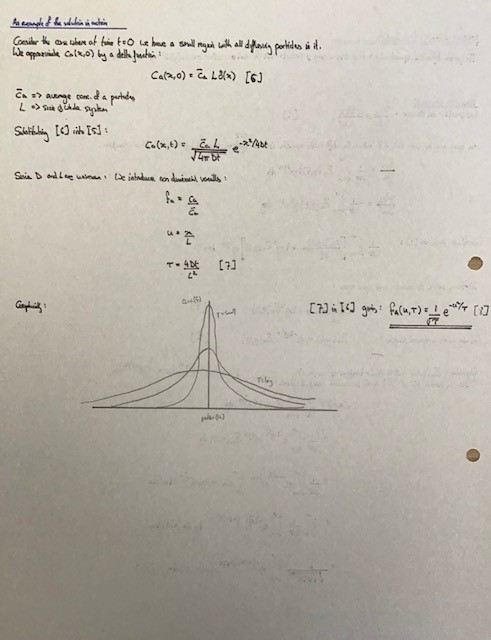 As example of the solution in motion
Consider the case where at time t=0 we have a small region with all diffusing particles in it.
We approximate Ca(x,0) by a delta function:
Ca(x,0) = c̄a L δ(x) [6]
c̄a => average conc. of a particles
L => size of whole system
Substituting [6] into [5]:
Ca(x,t) = c̄a L / √4πDt e^-x²/4Dt
Since D and L are unknown: We introduce non dimensional variables:
fa = Ca / c̄a
u = x / L
τ = 4Dt / L² [7]
Graphically:
[7] in [6] gives: fa(u,τ) = 1 / √πτ e^-u²/τ [8]